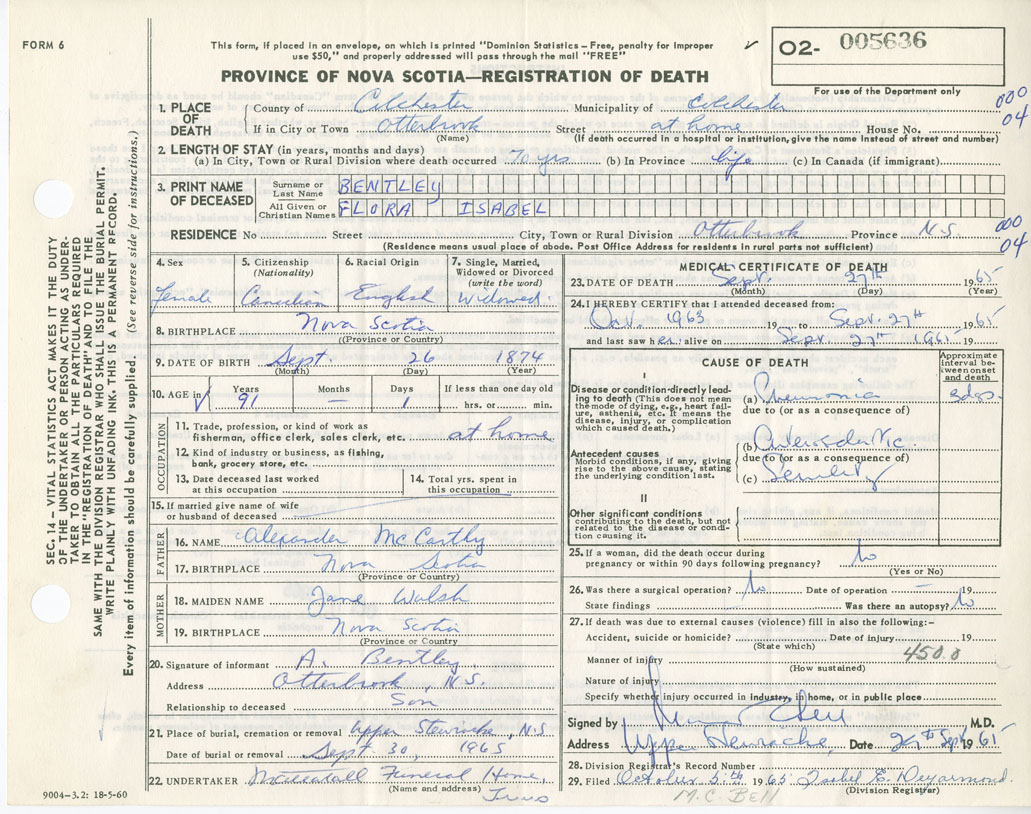 FORM 6
This form, if placed in an envelope, on which is printed "Dominion Statistics – Free, penalty for improper
use $50," and properly addressed will pass through the mail "FREE"
PROVINCE OF NOVA SCOTIA—REGISTRATION OF DEATH
✓ O2- 005636
For use of the Department only
000
04
1. PLACE OF DEATH
County of Colchester Municipality of Colchester
If in City or Town Otterbrook Street at home House No.
(Name) (If death occurred in a hospital or institution, give the name instead of street and number)
2. LENGTH OF STAY (in years, months and days)
(a) In City, Town or Rural Division where death occurred 70 yrs (b) In Province life (c) In Canada (if immigrant)
3. PRINT NAME OF DECEASED
Surname or Last Name BENTLEY
All Given or Christian Names FLORA ISABEL
RESIDENCE No Street City, Town or Rural Division Otterbrook Province N.S.
(Residence means usual place of abode. Post Office Address for residents in rural parts not sufficient)
000
04
4. Sex
Female
5. Citizenship
(Nationality)
Canadian
6. Racial Origin
English
7. Single, Married,
Widowed or Divorced
(write the word)
Widowed.
8. BIRTHPLACE Nova Scotia
(Province or Country)
9. DATE OF BIRTH Sept. 26 1874
(Month) (Day) (Year)
10. AGE ✓
Years Months Days If less than one day old
91 — 1 hrs. or min.
OCCUPATION
11. Trade, profession, or kind of work as
fisherman, office clerk, sales clerk, etc. at home
12. Kind of industry or business, as fishing,
bank, grocery store, etc.
13. Date deceased last worked
at this occupation
14. Total yrs. spent in
this occupation
15. If married give name of wife
or husband of deceased
FATHER
16. NAME Alexander McCarthy
17. BIRTHPLACE Nova Scotia
(Province or Country)
MOTHER
18. MAIDEN NAME Jane Walsh
19. BIRTHPLACE Nova Scotia
(Province or Country)
20. Signature of informant A. Bentley
Address Otterbrook, N.S.
Relationship to deceased Son
21. Place of burial, cremation or removal Upper Stewiacke, N.S
Date of burial or removal Sept. 30, 1965
22. UNDERTAKER Funeral Home,
(Name and address)
MEDICAL CERTIFICATE OF DEATH
23. DATE OF DEATH Sept. 27th 1965
(Month) (Day) (Year)
24. I HEREBY CERTIFY that I attended deceased from:
1963 19 to Sept. 27th 1965
and last saw her alive on Sept. 27th 1965 19
CAUSE OF DEATH
Approximate
interval be-
tween onset
and death
I
Disease or condition directly lead-
ing to death (This does not mean
the mode of dying, e.g., heart fail-
ure, asthenia, etc. It means the
disease, injury, or complication
which caused death.)
(a) Pneumonia 3 dys.
due to (or as a consequence of)
Antecedent causes
Morbid conditions, if any, giving
rise to the above cause, stating
the underlying condition last.
(b)
due to (or as a consequence of)
(c) Senility
II
Other significant conditions
contributing to the death, but not
related to the disease or condi-
tion causing it.
25. If a woman, did the death occur during
pregnancy or within 90 days following pregnancy? No
(Yes or No)
26. Was there a surgical operation? No Date of operation — 19
State findings Was there an autopsy? No
27. If death was due to external causes (violence) fill in also the following:–
Accident, suicide or homicide? Date of injury 19
(State which)
450.0
Manner of injury
(How sustained)
Nature of injury
Specify whether injury occurred in industry, in home, or in public place
Signed by M.D.
Address Upper Stewiacke, Date 27th Sept 1965
28. Division Registrar's Record Number
29. Filed October 5th 1965 Isabel E. Deyarmond.
(Division Registrar)
M.C. BELL
9004–3.2: 18-5-60
SEC. 14 – VITAL STATISTICS ACT MAKES IT THE DUTY
OF THE UNDERTAKER OR PERSON ACTING AS UNDER-
TAKER TO OBTAIN ALL THE PARTICULARS REQUIRED
IN THE "REGISTRATION OF DEATH" AND TO FILE THE
SAME WITH THE DIVISION REGISTRAR WHO SHALL ISSUE THE BURIAL PERMIT.
WRITE PLAINLY WITH UNFADING INK. THIS IS A PERMANENT RECORD.
Every item of information should be carefully supplied. (See reverse side for instructions.)